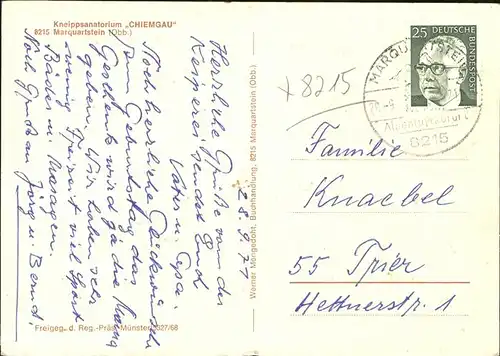 Kneippsanatorium „CHIEMGAU"
8215 Marquartstein (Obb.)
28.9.71
Herrliche Grüße von der
sendet Euch
Vater u.
Noch herzliche Glückwünsche
zum Geburtstag, das
Geschenk wird ja die
geben. Wir haben sehr
wenig Freizeit viel Sport
Bäder u. Massagen.
Noch Gruß an Jörg u. Bernd.
Freigeg. d. Reg.-Präs. Münster 627/68
Werner Mengedoht, Buchhandlung, 8215 Marquartstein (Obb.)
x 8215
25 DEUTSCHE
BUNDESPOST
MARQUARTSTEIN
8215
Familie
Knaebel
55 Trier
Hettnerstr. 1